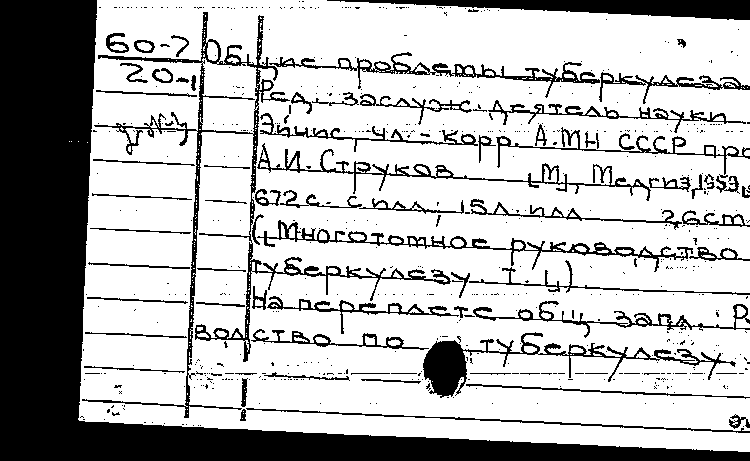 60-7
20-1
Общие проблемы туберкулеза
Ред.: заслуж. деятель науки
Эйнис, чл.-корр. АМН СССР про
А.И. Струков. [М], Медгиз, 1959
672 с. с илл; 15 л. илл 26 см
([Многотомное руководство
туберкулезу. Т. 1])
На переплете общ. загл.: Р
водство по туберкулезу.